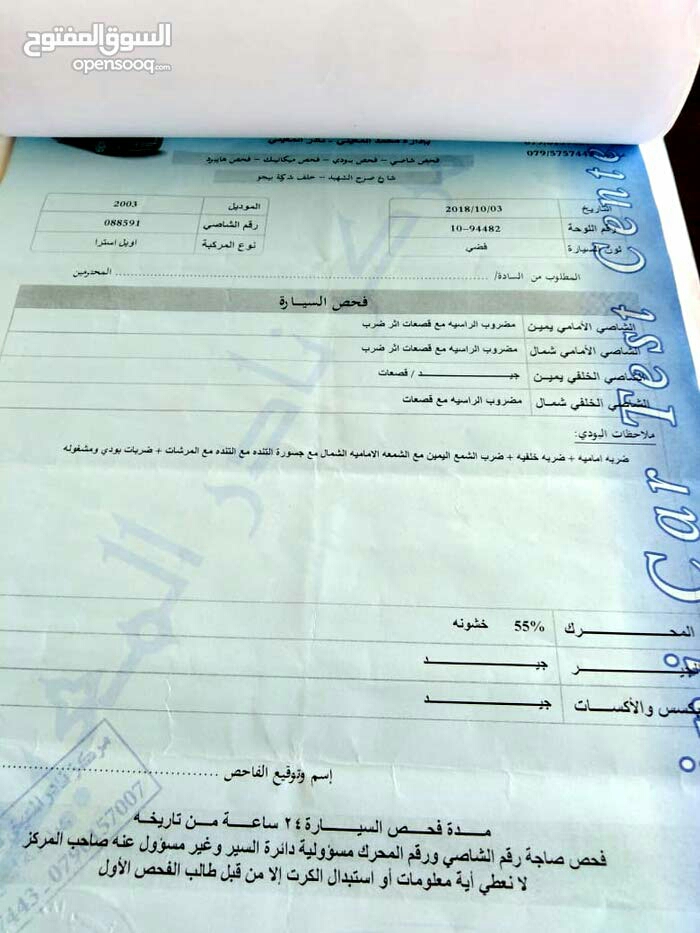 السوق المفتوح
opensooq.com
079/5757443
فحص شاصي – فحص بودي – فحص ميكانيك – فحص هايبرد
شارع صرح الشهيد – خلف شركة بيجو
التاريخ 2018/10/03 الموديل 2003
رقم اللوحة 10-94482 رقم الشاصي 088591
لون السيارة فضي نوع المركبة اوبل استرا
المطلوب من السادة/ المحترمين
فحص السيارة
الشاصي الأمامي يمين مضروب الراسيه مع قصعات اثر ضرب
الشاصي الأمامي شمال مضروب الراسيه مع قصعات اثر ضرب
الشاصي الخلفي يمين جيد / قصعات
الشاصي الخلفي شمال مضروب الراسيه مع قصعات
ملاحظات البودي:
ضربه اماميه + ضربه خلفيه + ضرب الشمع اليمين مع الشمعه الاماميه الشمال مع جسورة التنده مع التنده مع المرشات + ضربات بودي ومشغوله
المحرك 55% خشونه
الجير جيد
بكسس والأكسات جيد
إسم وتوقيع الفاحص
مدة فحص السيارة ٢٤ ساعة من تاريخه
فحص صاجة رقم الشاصي ورقم المحرك مسؤولية دائرة السير وغير مسؤول عنه صاحب المركز
لا نعطي أية معلومات أو استبدال الكرت إلا من قبل طالب الفحص الأول
Car Test Cente